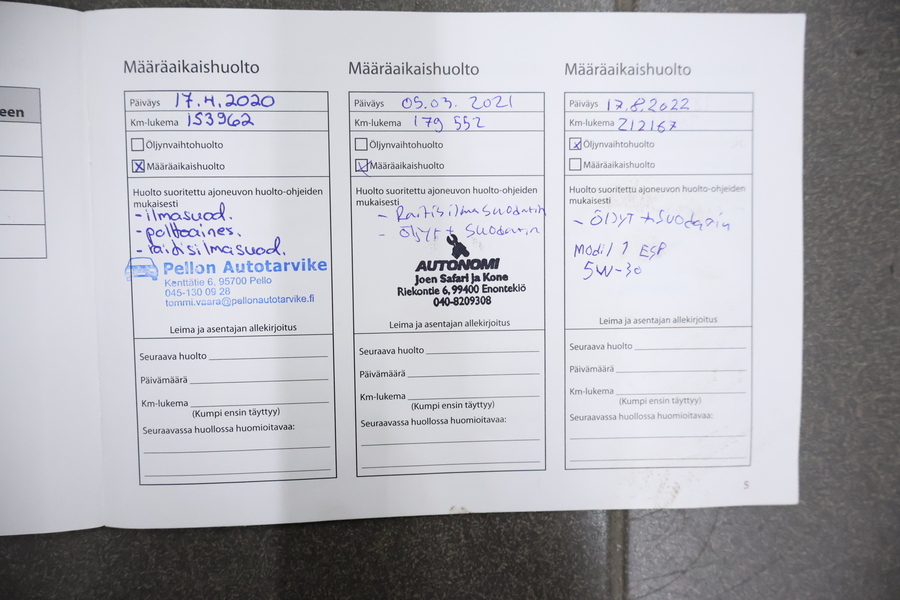 een
Määräaikaishuolto
Päiväys 17.4.2020
Km-lukema 153962
Öljynvaihtohuolto
x Määräaikaishuolto
Huolto suoritettu ajoneuvon huolto-ohjeiden
mukaisesti
- ilmasuod.
- polttoaines.
- raitisilmasuod.
Pellon Autotarvike
Kenttätie 6, 95700 Pello
045-130 09 28
tommi.vaara@pellonautotarvike.fi
Leima ja asentajan allekirjoitus
Seuraava huolto
Päivämäärä
Km-lukema
(Kumpi ensin täyttyy)
Seuraavassa huollossa huomioitavaa:
Määräaikaishuolto
Päiväys 05.03.2021
Km-lukema 179 552
Öljynvaihtohuolto
Määräaikaishuolto
Huolto suoritettu ajoneuvon huolto-ohjeiden
mukaisesti
- Raitisilmasuodatin
- Öljyt + suodatin
AUTONOMI
Joen Safari ja Kone
Riekontie 6, 99400 Enontekiö
040-8209308
Leima ja asentajan allekirjoitus
Seuraava huolto
Päivämäärä
Km-lukema
(Kumpi ensin täyttyy)
Seuraavassa huollossa huomioitavaa:
Määräaikaishuolto
Päiväys 17.8.2022
Km-lukema 212167
x Öljynvaihtohuolto
Määräaikaishuolto
Huolto suoritettu ajoneuvon huolto-ohjeiden
mukaisesti
- Öljyt + suodatin
Mobil 1 ESP
5W-30
Leima ja asentajan allekirjoitus
Seuraava huolto
Päivämäärä
Km-lukema
(Kumpi ensin täyttyy)
Seuraavassa huollossa huomioitavaa:
5